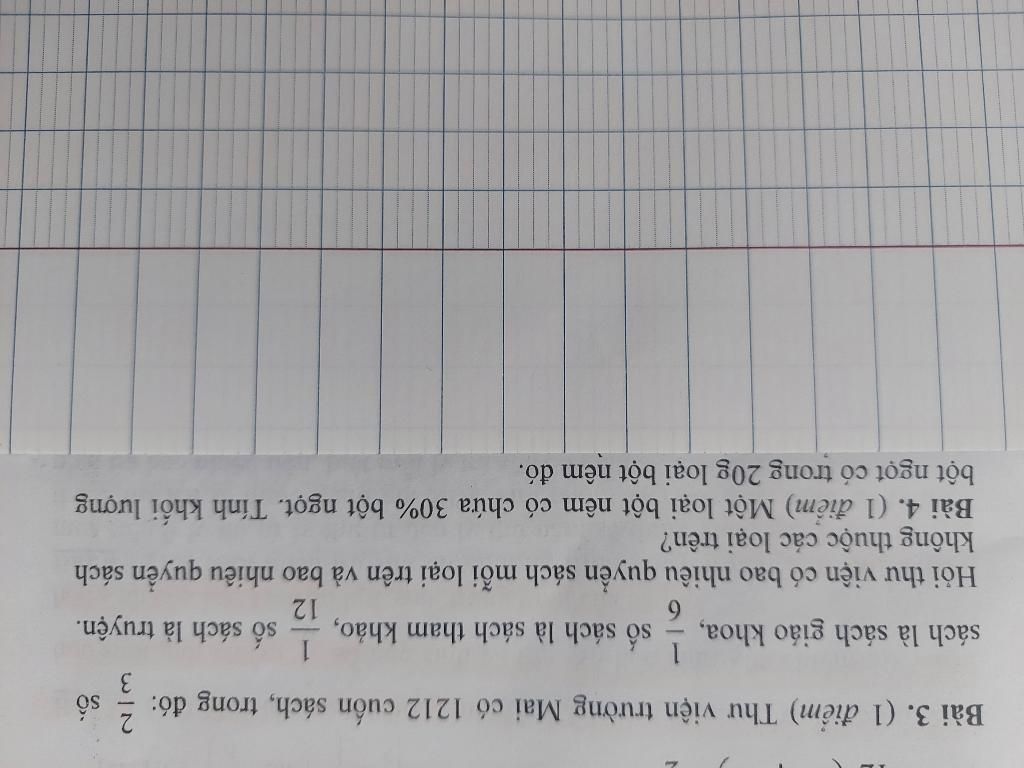 Bài 3. (1 điểm) Thư viện trường Mai có 1212 cuốn sách, trong đó: 2/3 số
sách là sách giáo khoa, 1/6 số sách là sách tham khảo, 1/12 số sách là truyện.
Hỏi thư viện có bao nhiêu quyển sách mỗi loại trên và bao nhiêu quyển sách
không thuộc các loại trên?
Bài 4. (1 điểm) Một loại bột nêm có chứa 30% bột ngọt. Tính khối lượng
bột ngọt có trong 20g loại bột nêm đó.